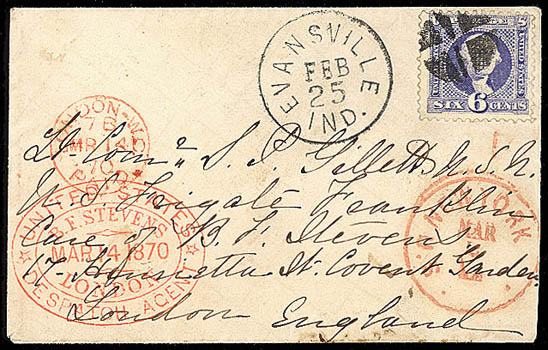 EVANSVILLE
FEB
25
IND.
UNITED STATES
SIX 6 CENTS
LONDON-W.C
7B
MR 14
70
PAID
Lt. Com. S. P. Gillett U.S.N.
U.S. Frigate Franklin
Care of B. F. Stevens
17 Henrietta St. Covent Garden
London England
UNITED STATES
B.F. STEVENS
MAR 14 1870
LONDON
DESPATCH AGENT
NEW YORK
MAR